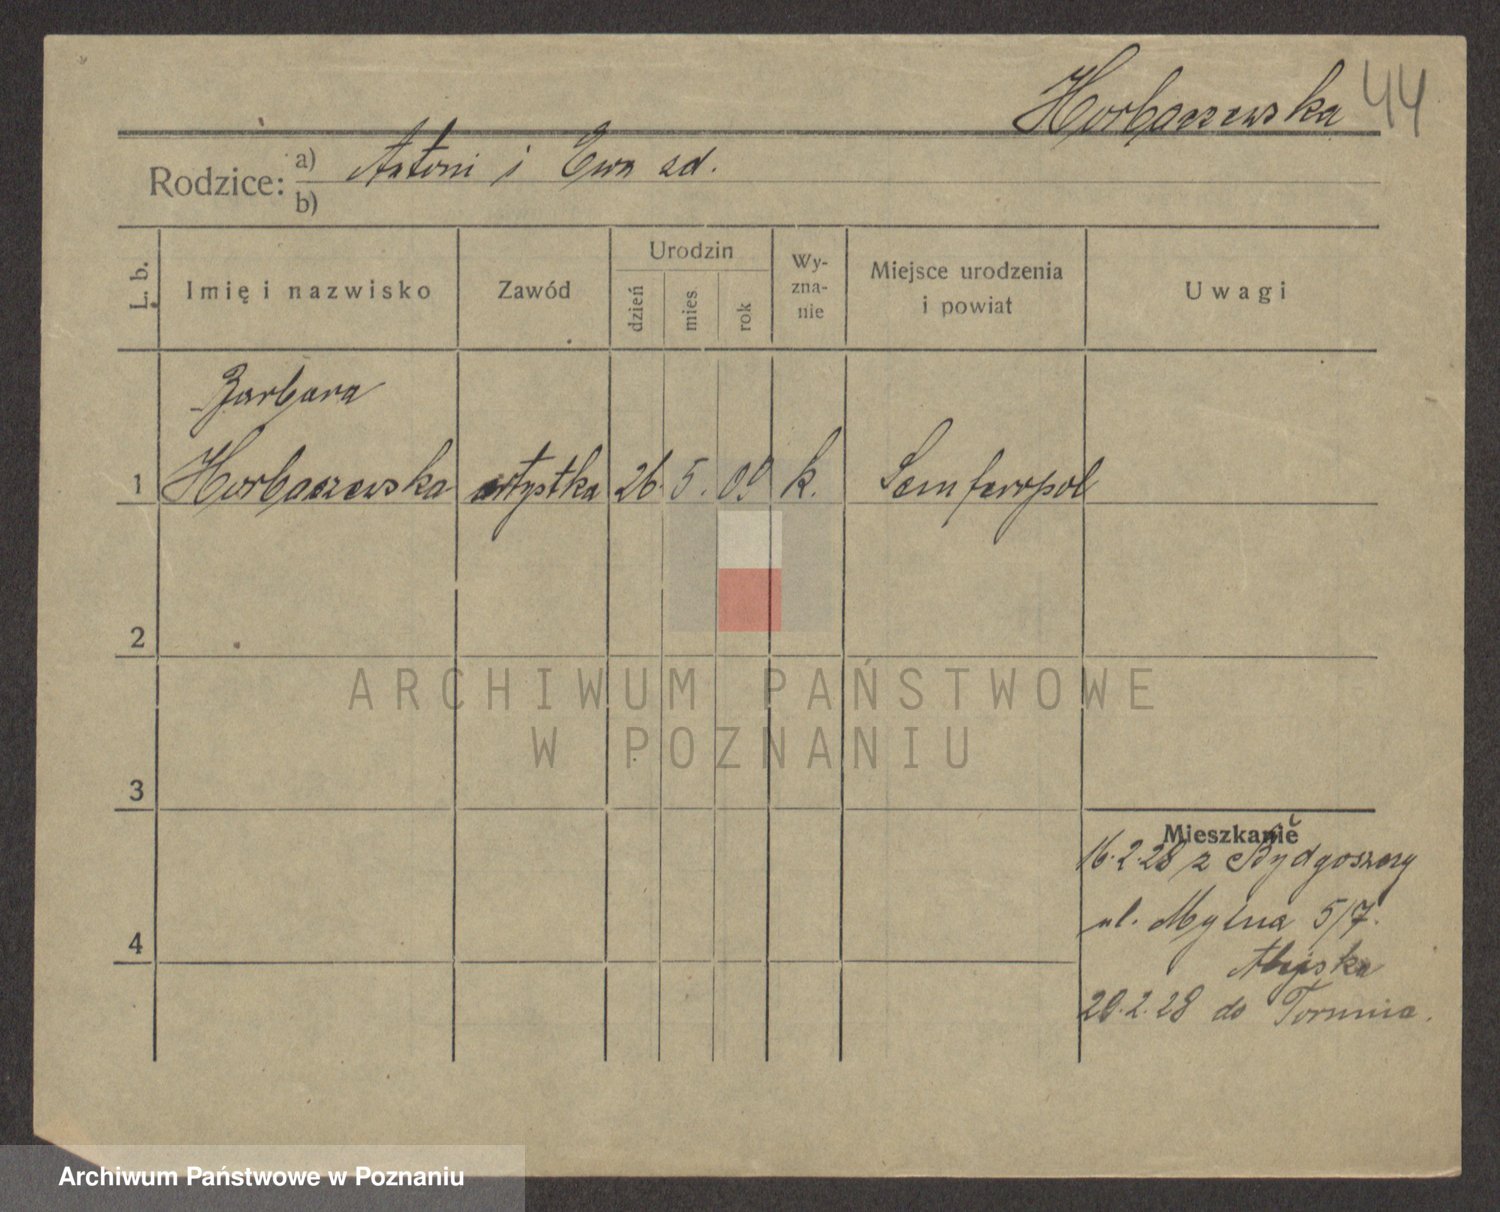 Horbaczewska 44
Rodzice: a) Antoni i Ewa zd.
b)
L. b. Imię i nazwisko Zawód Urodzin dzień mies. rok Wy-zna-nie Miejsce urodzenia i powiat Uwagi
Barbara
1 Horbaczewska artystka 26. 5. 09 k. Semferopol
2
ARCHIWUM PAŃSTWOWE
W POZNANIU
3
Mieszkanie
16.2.28 z Bydgoszczy
ul. Mylna 5/7.
4
20.2.28 do Torunia.
Archiwum Państwowe w Poznaniu